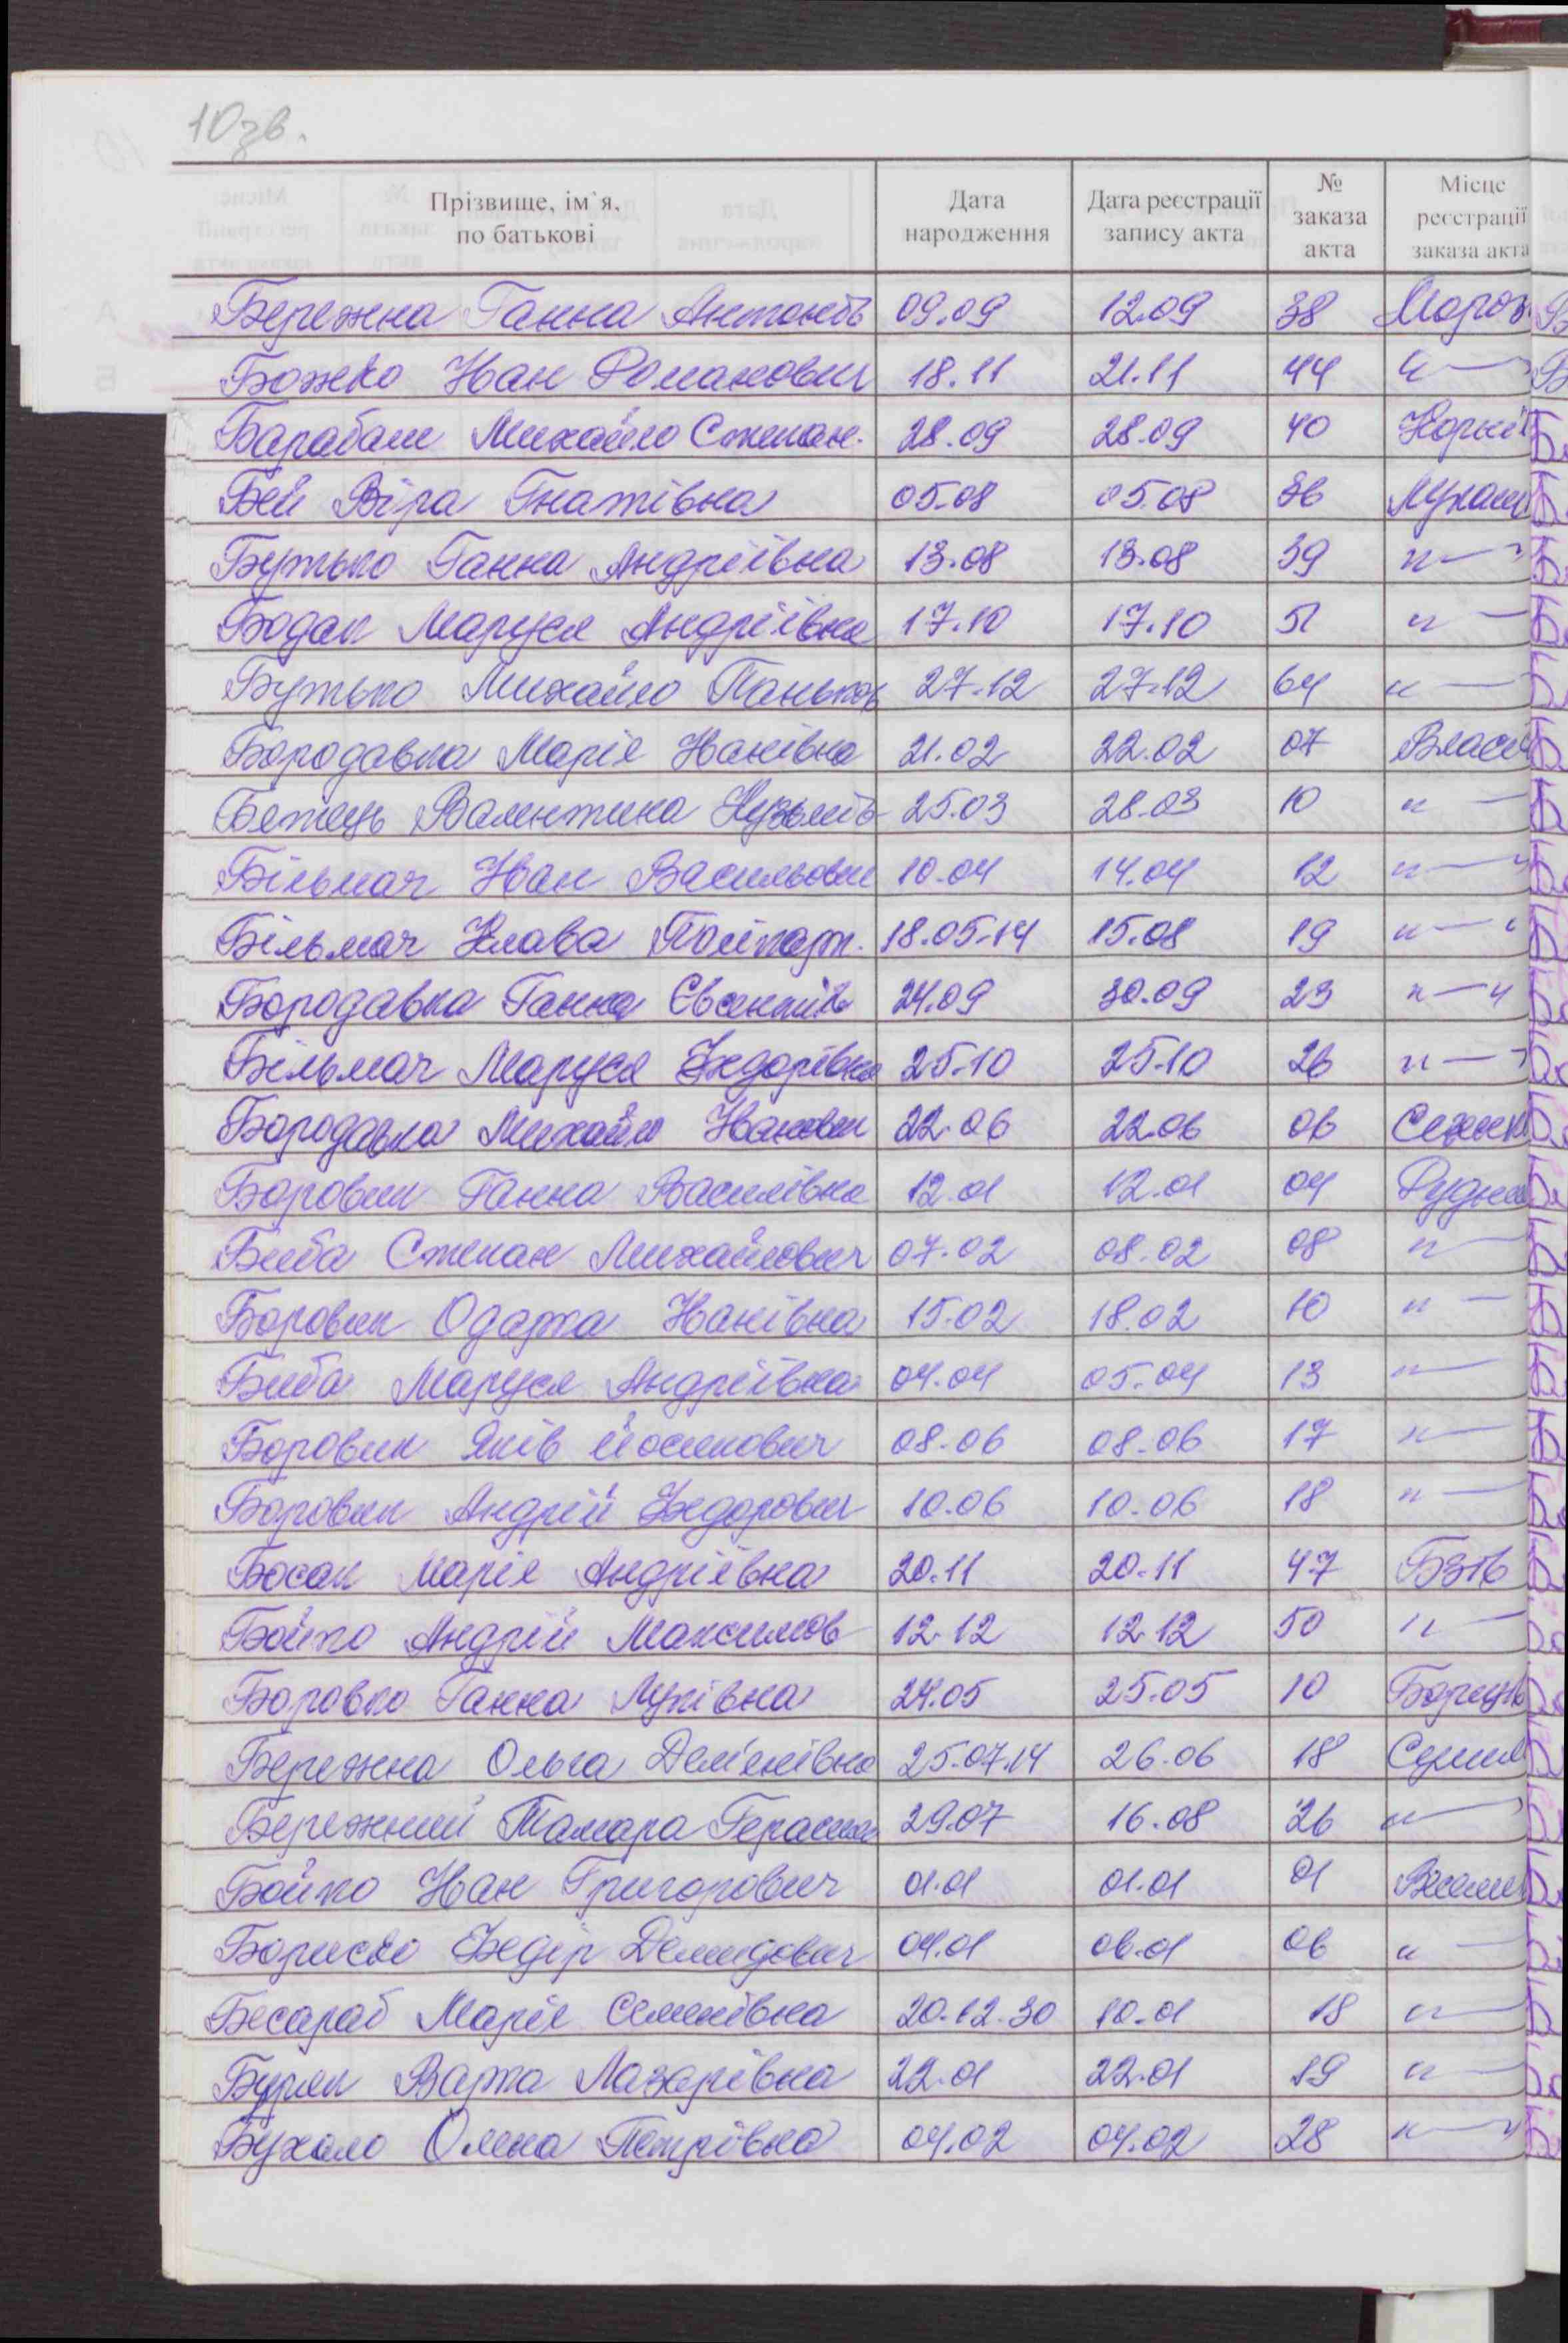 10зв.
Прізвище, ім`я, по батькові | Дата народження | Дата реєстрації запису акта | № заказа акта | Місце реєстрації заказа акта
Бережна Ганна Антонів 09.09 12.09 38 Мороз
Божко Іван Романович 18.11 21.11 44 "—"
Барабаш Михайло Степан. 28.09 28.09 40 Корній
Бей Віра Гнатівна 05.08 05.08 36 Лукаш
Бутько Ганна Андріївна 13.08 13.08 39 "—"
Бодак Маруся Андріївна 17.10 17.10 51 "—
Бутько Михайло Паньков 27.12 27.12 64 "—
Бородавка Марія Іванівна 21.02 22.02 07 Власі
Бетець Валентина Кузьмів 25.03 28.03 10 "—
Більмач Іван Васильович 10.04 14.04 12 "—"
Більмач Клава Полікарп. 18.05.14 15.08 19 "—"
Бородавка Ганна Євсентіїв 24.09 30.09 23 "—"
Більмач Маруся Федорівна 25.10 25.10 26 "—"
Бородавка Михайло Іванович 22.06 22.06 06 Сежк
Боровик Ганна Василівна 12.01 12.01 04 Рудня
Биба Степан Михайлович 07.02 08.02 08 "—
Боровик Одарка Іванівна 15.02 18.02 10 "—
Биба Маруся Андріївна 04.04 05.04 13 "—
Боровик Яків Йосипович 08.06 08.06 17 "—
Боровик Андрій Федорович 10.06 10.06 18 "—
Босак Марія Андріївна 20.11 20.11 47 Бзів
Бойко Андрій Максимов 12.12 12.12 50 "—
Боровко Ганна Луківна 24.05 25.05 10 Борщів
Бережна Ольга Дем'янівна 25.07.14 26.06 18 Семе
Бережний Тамара Герасим 29.07 16.08 26 "—"
Бойко Іван Григорович 01.01 01.01 01 Весели
Бориско Федір Демидович 04.01 06.01 06 "—
Бесараб Марія Семенівна 20.12.30 10.01 18 "—
Буряк Варка Лазарівна 22.01 22.01 19 "—
Бухало Олена Петрівна 04.02 04.02 28 "—"